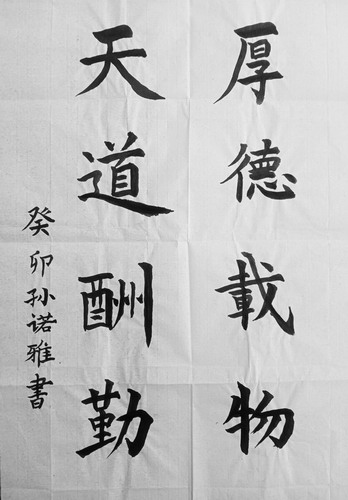 厚德載物
天道酬勤
癸卯孙诺雅書